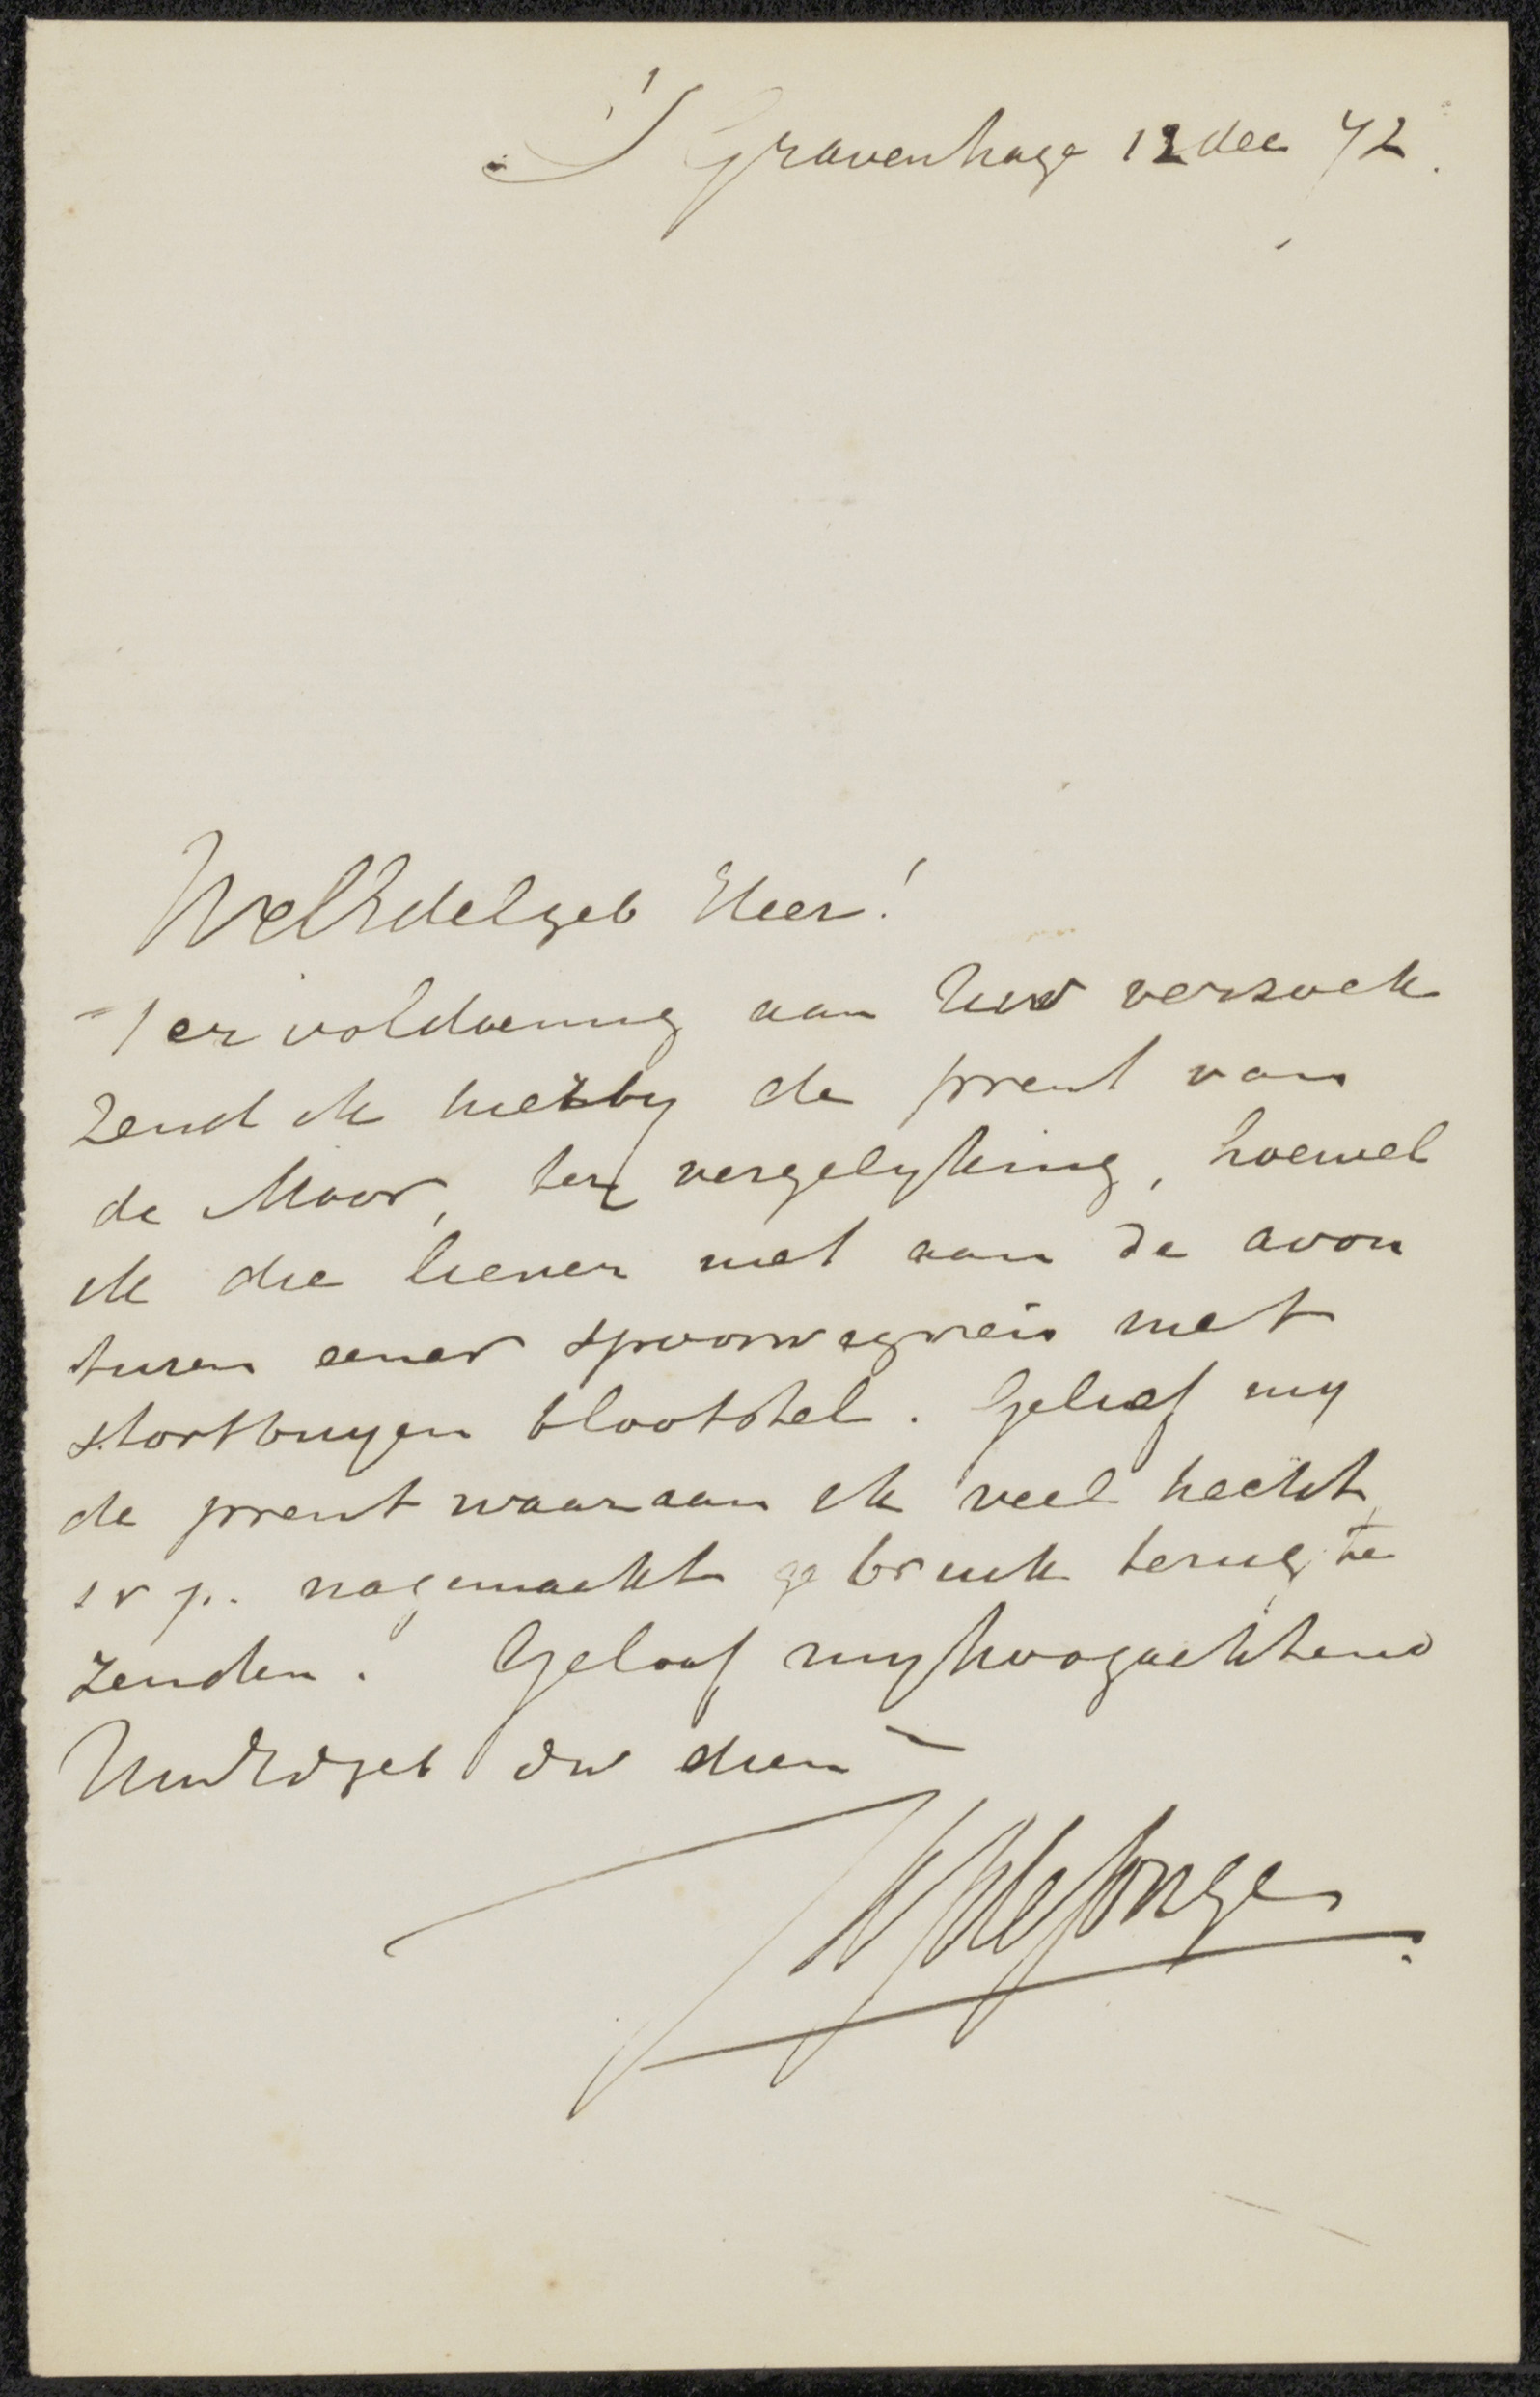 'S Gravenhage 12 dec 72.
WelEdelgeb Heer!
Ter voldoening aan Uw verzoek
zend ik hierby de prent van
de Moor, ter vergelyking, hoewel
ik die liever niet aan de avon
turen eener spoorwegreis met
stortbuyen blootstel. Gelief my
de prent waaraan ik veel hecht,
s v p. nagemaakt gebruik terug te
zenden. Geloof my hoogachtend
UwEdgeb dw dien
de Jonge